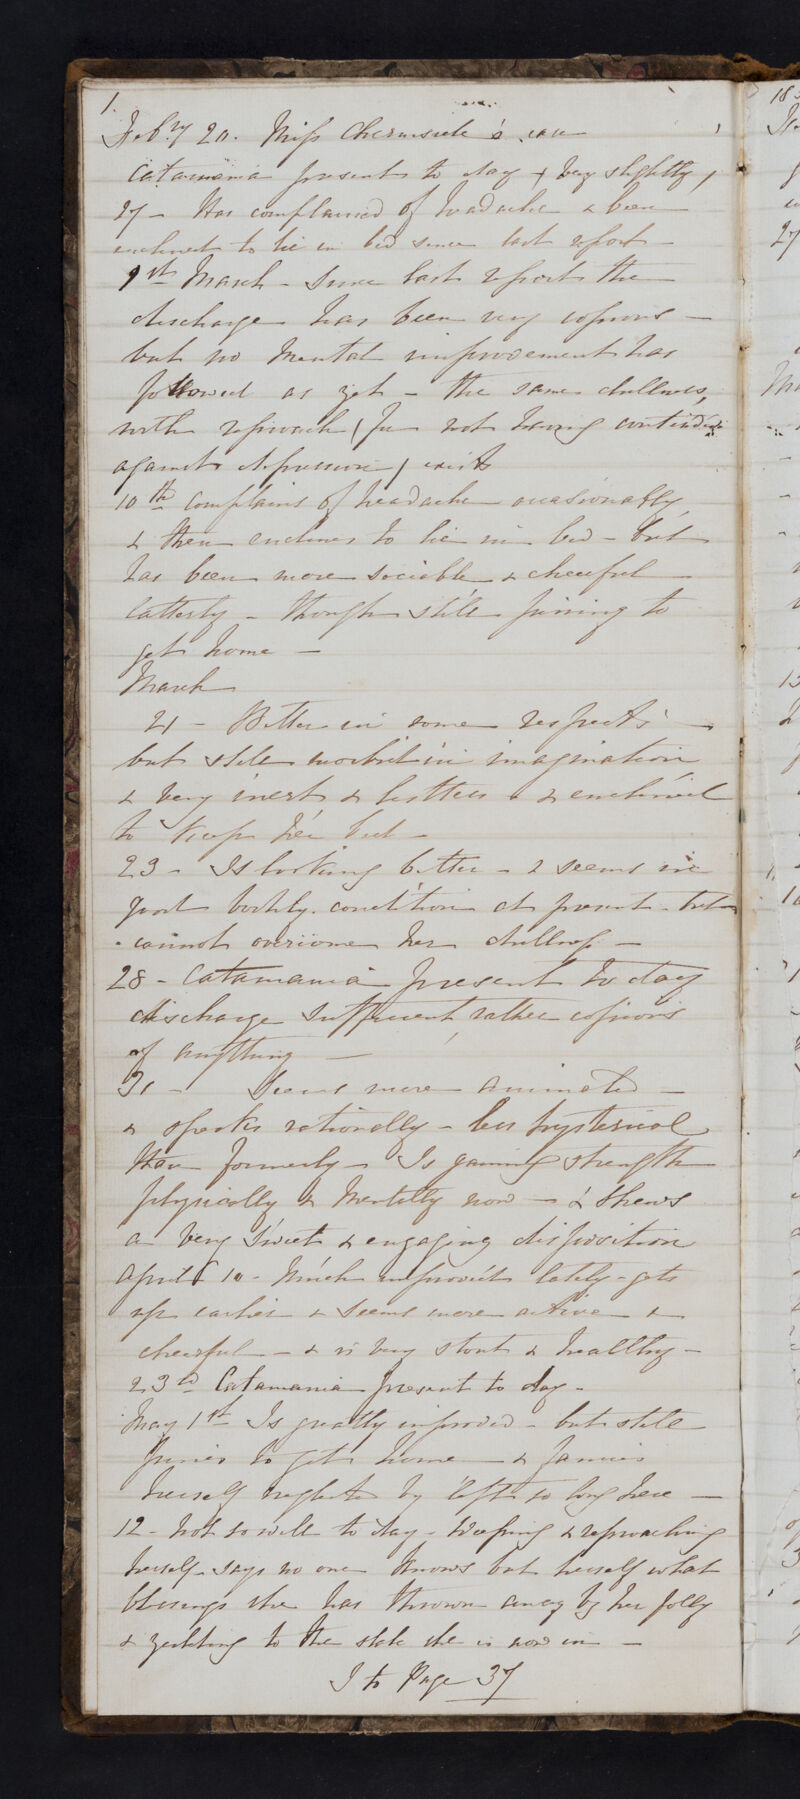 1.
Feby 20. Miss Chermside's case
Catamania present to day & very slightly,
27 - Has complained of headache & been
inclined to lie in bed since last report -
1st March - Since last report the
discharge has been very copious -
but no Mental improvement has
followed as yet - the same dullness,
with reproach (for not having contended
against depression) exists
10th complains of headache occasionally
& then enclines to lie in bed - but
has been more sociable & cheerful
latterly - though still pining to
get home -
March
21 - Better in some respects -
but still morbid in imagination
& very inert & listless & enclined
to keep her bed -
23 - Is looking better - & seems in
good bodily condition at present - but
cannot overcome her dullness -
28 - Catamania present to day
discharge sufficient, rather copious
if anything -
31 - Seems more animated -
& speaks rationally - less hysterical
than formerly - Is gaining strength
physically & Mentally now - & shews
a very sweet & engaging disposition
April 10 - Much improved lately - gets
up earlier & seems more active &
cheerful - & is very stout & healthy -
23d Catamania present to day -
May 1st Is greatly improved - but still
pines to get home & fancies
herself neglected by left so long here -
12 - Not so well to day - Weeping & reproaching
herself - says no one knows but herself what
blessings she has thrown away by her folly
& yielding to the state she is now in -
to Page 37
18
27